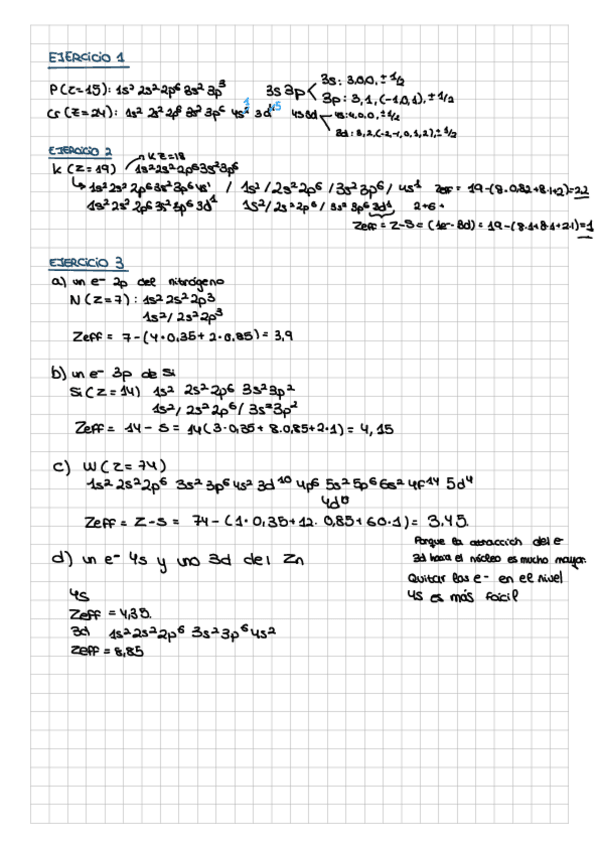 EJERCICIO 1
P(Z=15): 1s² 2s² 2p⁶ 3s² 3p³ 3s 3p < 3s: 3,0,0, ± 1/2
3p: 3, 1, (-1,0,1), ± 1/2
Cr (Z=24): 1s² 2s² 2p⁶ 3s² 3p⁶ 4s¹ 3d⁵ 4s 3d < 4s: 4,0,0, ± 1/2
3d: 3, 2, (-2,-1,0,1,2), ± 1/2
EJERCICIO 2
K (Z=19) 1s² 2s² 2p⁶ 3s² 3p⁶
Z=18
↳ 1s² 2s² 2p⁶ 3s² 3p⁶ 4s¹ / 1s² / 2s² 2p⁶ / 3s² 3p⁶ / 4s¹ Zeff = 19-(8·0,85+8·1+2)=2,2
1s² 2s² 2p⁶ 3s² 3p⁶ 3d¹ 1s² / 2s² 2p⁶ / 3s² 3p⁶ 3d¹ 2+6+
Zeff = Z-S = (1e⁻ 3d) = 19-(8·1+8·1+2·1)=1
EJERCICIO 3
a) un e⁻ 2p del nitrógeno
N (Z=7): 1s² 2s² 2p³
1s² / 2s² 2p³
Zeff = 7-(4·0,35+2·0,85)= 3,9
b) un e⁻ 3p de Si
Si (Z=14) 1s² 2s² 2p⁶ 3s² 3p²
1s² / 2s² 2p⁶ / 3s² 3p²
Zeff = 14 - S = 14(3·0,35+ 8·0,85+2·1) = 4,15
c) W (Z=74)
1s² 2s² 2p⁶ 3s² 3p⁶ 4s² 3d¹⁰ 4p⁶ 5s² 5p⁶ 6s² 4f¹⁴ 5d⁴
Zeff = Z-S = 74-(1·0,35+12·0,85+60·1)= 3,45.
d) un e⁻ 4s y uno 3d del Zn
Porque la atracción del e⁻
3d hacia el núcleo es mucho mayor.
Quitar los e⁻ en el nivel
4s es más fácil
4s
Zeff = 4,35.
3d 1s² 2s² 2p⁶ 3s² 3p⁶ 4s²
Zeff = 8,85